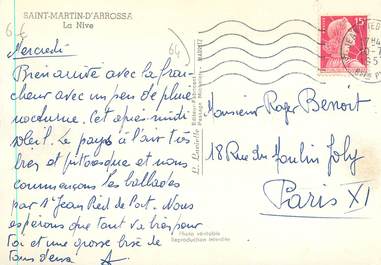 6€
SAINT-MARTIN-D'ARROSSA
La Nive
64
15F
Mercredi
Bien arrivé avec la fraî-
cheur avec un peu de pluie
nocturne. Cet après-midi
soleil. Le pays a l'air très
bien et pittoresque et nous
commençons les ballades
par St Jean Pied de Port. Nous
espérons que tout va bien pour
toi et une grosse bise de
tous deux
Monsieur Roger Benoit
18 Rue du Moulin Joly
Paris XI
Photo véritable
Reproduction interdite